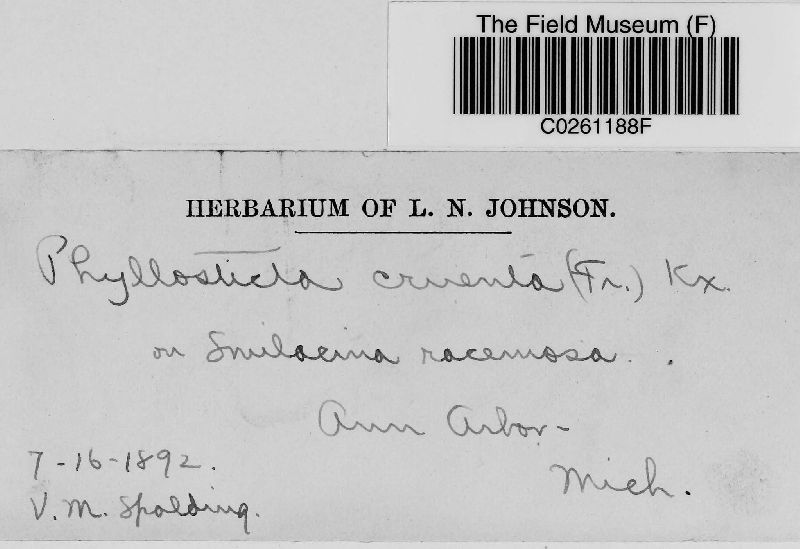 The Field Museum (F)
C0261188F
HERBARIUM OF L. N. JOHNSON.
Phyllosticta cruenta (Fr.) Kx.
on Smilacina racemosa.
Ann Arbor-
Mich.
7-16-1892.
V. M. Spalding.